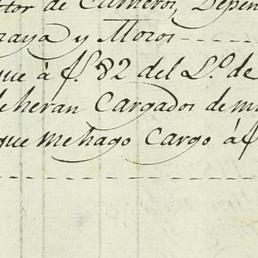 tor de Carneros, Depen
raya y Moros
que â f.º 82 del L.º de
de heran Cargados de m
que me hago Cargo â f